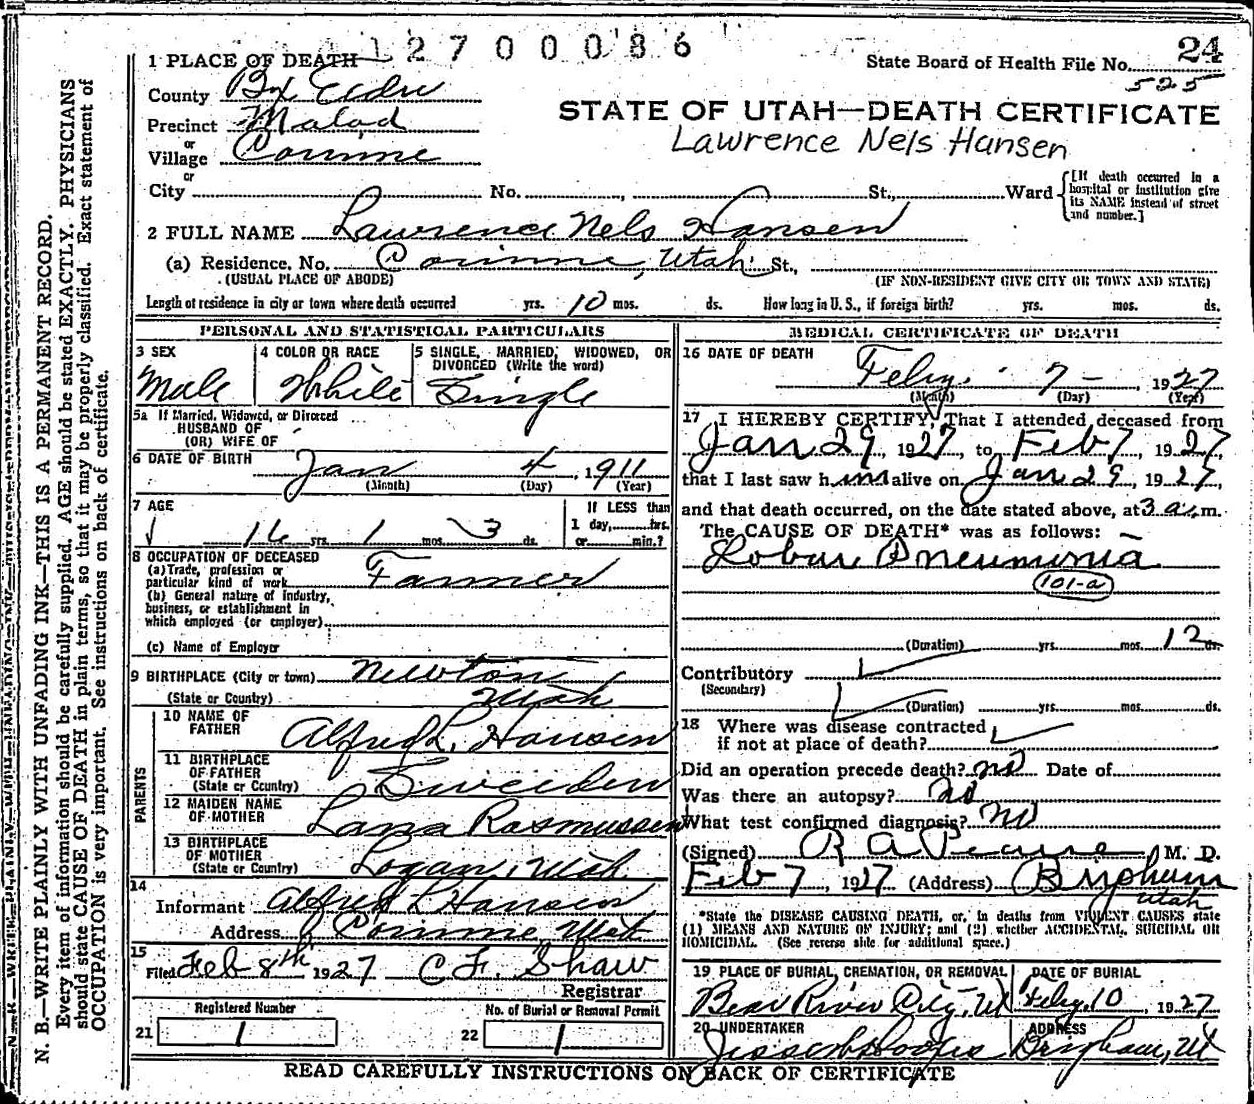 12700086
24
1 PLACE OF DEATH
State Board of Health File No.
525
County Box Elder
STATE OF UTAH—DEATH CERTIFICATE
Precinct Malad
Lawrence Nels Hansen
or
Village Corinne
or
City No. , St., Ward
[If death occurred in a hospital or institution give its NAME instead of street and number.]
2 FULL NAME Lawrence Nels Hansen
(a) Residence, No. Corinne, Utah St.,
(USUAL PLACE OF ABODE) (IF NON-RESIDENT GIVE CITY OR TOWN AND STATE)
Length of residence in city or town where death occurred yrs. 10 mos. ds. How long in U. S., if foreign birth? yrs. mos. ds.
PERSONAL AND STATISTICAL PARTICULARS
3 SEX 4 COLOR OR RACE 5 SINGLE, MARRIED, WIDOWED, OR DIVORCED (Write the word)
Male White Single
5a If Married, Widowed, or Divorced
HUSBAND OF
(OR) WIFE OF
6 DATE OF BIRTH Jan 4, 1911
(Month) (Day) (Year)
7 AGE If LESS than
16 yrs. 1 mos. 3 ds. 1 day, hrs.
or min.?
8 OCCUPATION OF DECEASED
(a) Trade, profession or
particular kind of work Farmer
(b) General nature of industry,
business, or establishment in
which employed (or employer)
(c) Name of Employer
9 BIRTHPLACE (City or town) Newton
(State or Country) Utah
PARENTS
10 NAME OF FATHER Alfred L. Hansen
11 BIRTHPLACE OF FATHER (State or Country) Sweeden
12 MAIDEN NAME OF MOTHER Lana Rasmussen
13 BIRTHPLACE OF MOTHER (State or Country) Logan, Utah
14
Informant Alfred L Hansen
Address Corinne Utah
15
Filed Feb 8th 1927 C F. Shaw
Registrar
Registered Number No. of Burial or Removal Permit
21 1 22 1
MEDICAL CERTIFICATE OF DEATH
16 DATE OF DEATH Feby. 7 - , 1927
(Month) (Day) (Year)
17 I HEREBY CERTIFY, That I attended deceased from
Jan 29, 1927 to Feb 7, 1927,
that I last saw him alive on Jan 29, 1927,
and that death occurred, on the date stated above, at 3 a.m.
The CAUSE OF DEATH* was as follows:
Lobar Pneumonia
101-a
(Duration) yrs. mos. 12 ds.
Contributory
(Secondary)
(Duration) yrs. mos. ds.
18 Where was disease contracted
if not at place of death?
Did an operation precede death? no Date of
Was there an autopsy? no
What test confirmed diagnosis? no
(Signed) R A Pearse, M. D.
Feb 7, 1927 (Address) Brigham
Utah
*State the DISEASE CAUSING DEATH, or, in deaths from VIOLENT CAUSES state
(1) MEANS AND NATURE OF INJURY; and (2) whether ACCIDENTAL, SUICIDAL OR
HOMICIDAL. (See reverse side for additional space.)
19 PLACE OF BURIAL, CREMATION, OR REMOVAL DATE OF BURIAL
Bear River City, Ut Feby. 10 1927
20 UNDERTAKER ADDRESS
Brigham, Ut
READ CAREFULLY INSTRUCTIONS ON BACK OF CERTIFICATE
N. B.—WRITE PLAINLY WITH UNFADING INK—THIS IS A PERMANENT RECORD.
Every item of information should be carefully supplied. AGE should be stated EXACTLY. PHYSICIANS
should state CAUSE OF DEATH in plain terms, so that it may be properly classified. Exact statement of
OCCUPATION is very important. See instructions on back of certificate.